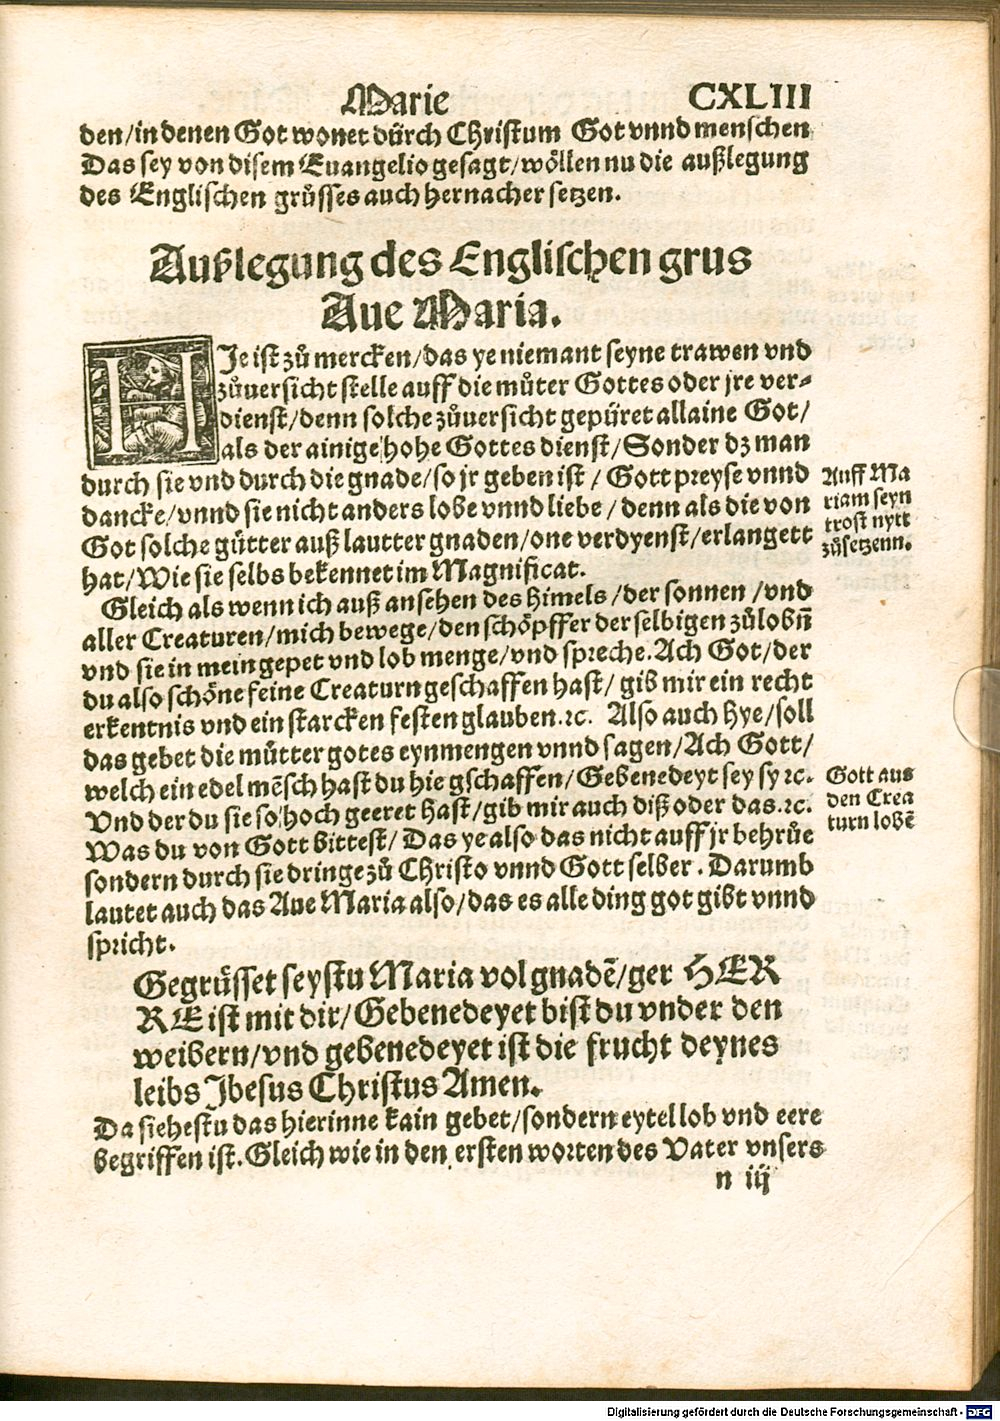 Marie CXLIII
den/in denen Got wonet dürch Christum Got vnnd menschen
Das sey von disem Euangelio gesagt/wöllen nu die außlegung
des Englischen grüsses auch hernacher setzen.
Außlegung des Englischen grus
Aue Maria.
HJe ist zů mercken/das ye niemant seyne trawen vnd
zůuersicht stelle auff die můter Gottes oder jre ver⸗
dienst/denn solche zůuersicht gepüret allaine Got/
als der ainige hohe Gottes dienst/Sonder dz man
durch sie vnd durch die gnade/so jr geben ist/Gott preyse vnnd
dancke/vnnd sie nicht anders lobe vnnd liebe/denn als die von
Got solche gütter auß lautter gnaden/one verdyenst/erlangett
hat/Wie sie selbs bekennet im Magnificat.
Auff Ma
riam seyn
trost nytt
zůsetzenn.
Gleich als wenn ich auß ansehen des Himels/der sonnen/vnd
aller Creaturen/mich bewege/den schöpffer der selbigen zůlobn̄
vnd sie in mein gepet vnd lob menge/vnd spreche.Ach Got/der
du also schöne feine Creaturn geschaffen hast/gib mir ein recht
erkentnis vnd ein starcken festen glauben.ꝛc. Also auch hye/soll
das gebet die mütter gotes eynmengen vnnd sagen/Ach Gott/
welch ein edel mēsch hast du hie gschaffen/Gebenedeyt sey sy ꝛc.
Vnd der du sie so hoch geeret hast/gib mir auch diß oder das.ꝛc.
Was du von Gott bittest/Das ye also das nicht auff jr behrůe
sondern durch sie dringe zů Christo vnnd Gott selber. Darumb
lautet auch das Aue Maria also/das es alle ding got gibt vnnd
spricht.
Gott aus
den Crea
turn lobē
Gegrüsset seystu Maria vol gnadē/ger HER
RE ist mit dir/Gebenedeyet bist du vnder den
weibern/vnd gebenedeyet ist die frucht deynes
leibs Jhesus Christus Amen.
Da siehestu das hierinne kain gebet/sondern eytel lob vnd eere
begriffen ist.Gleich wie in den ersten worten des Vater vnsers
n iij
Digitalisierung gefördert durch die Deutsche Forschungsgemeinschaft - DFG